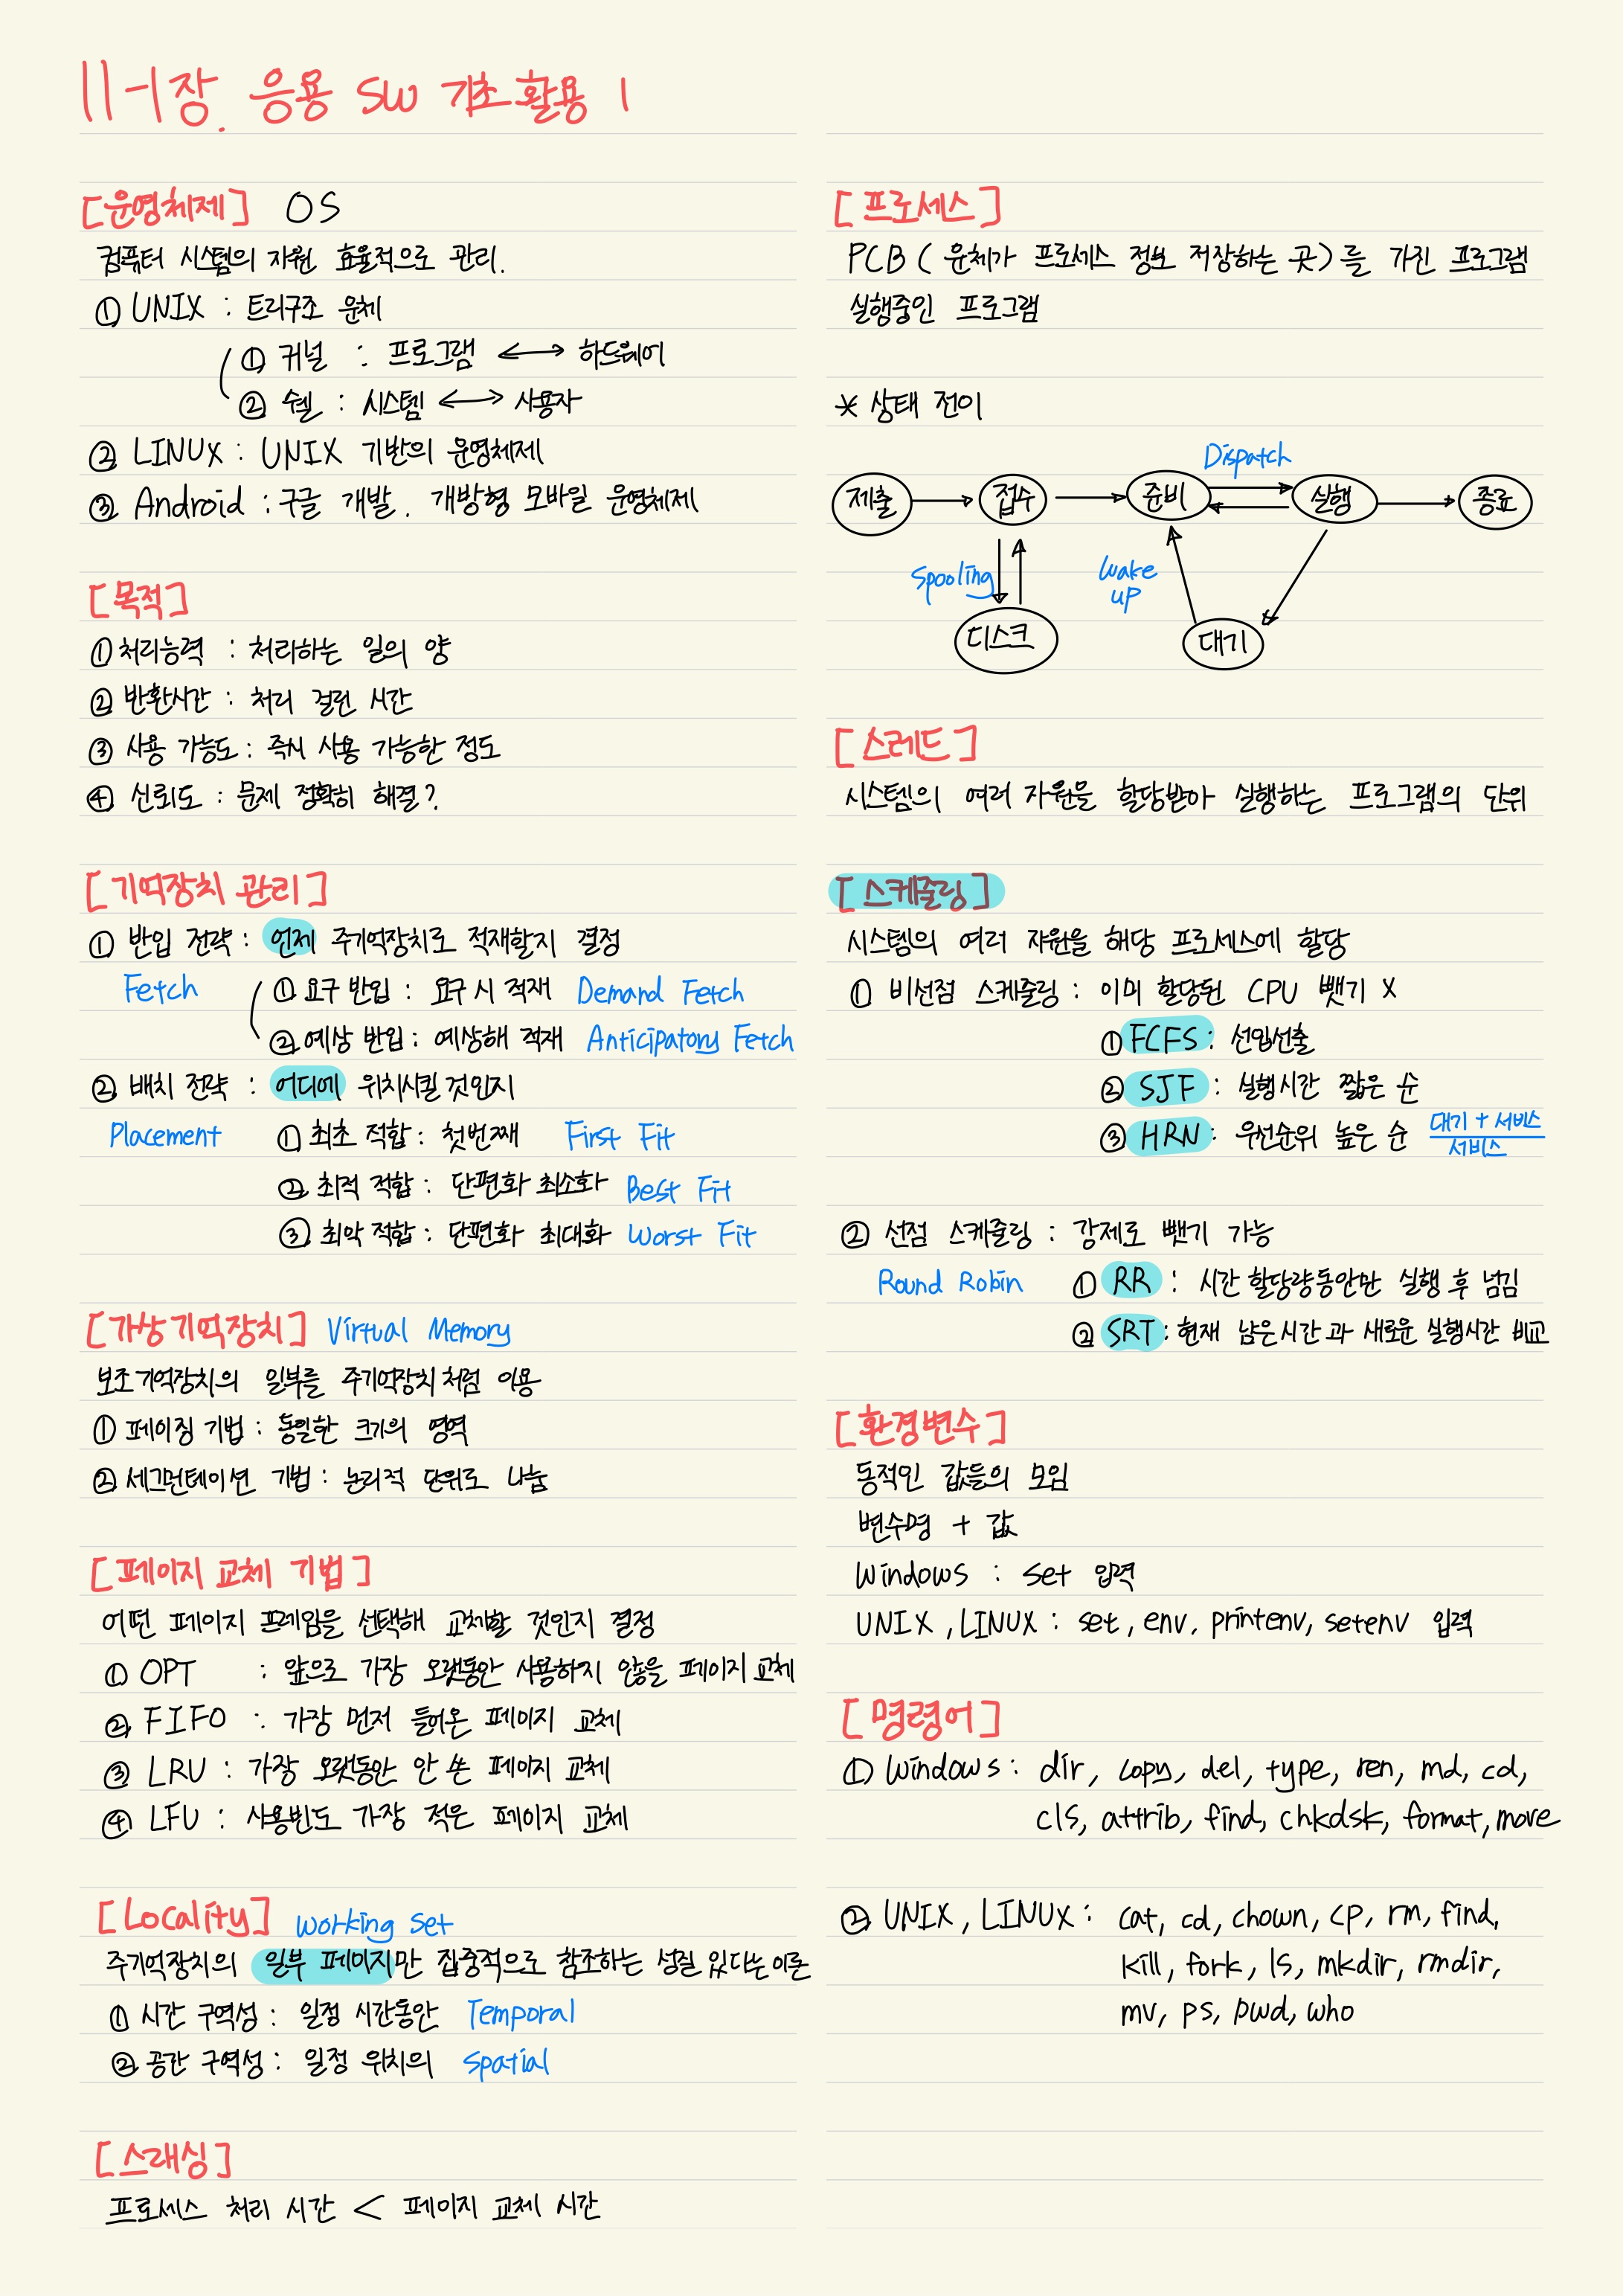 11-1장. 응용 SW 기초 활용 1
[운영체제] OS
컴퓨터 시스템의 자원 효율적으로 관리.
① UNIX : 트리구조 운체
① 커널 : 프로그램 ↔ 하드웨어
② 쉘 : 시스템 ↔ 사용자
② LINUX : UNIX 기반의 운영체제
③ Android : 구글 개발. 개방형 모바일 운영체제
[목적]
① 처리능력 : 처리하는 일의 양
② 반환시간 : 처리 걸린 시간
③ 사용 가능도 : 즉시 사용 가능한 정도
④ 신뢰도 : 문제 정확히 해결?
[기억장치 관리]
① 반입 전략 : 언제 주기억장치로 적재할지 결정
Fetch ① 요구 반입 : 요구 시 적재 Demand Fetch
② 예상 반입 : 예상해 적재 Anticipatory Fetch
② 배치 전략 : 어디에 위치시킬 것인지
Placement ① 최초 적합 : 첫번째 First Fit
② 최적 적합 : 단편화 최소화 Best Fit
③ 최악 적합 : 단편화 최대화 Worst Fit
[가상기억장치] Virtual Memory
보조기억장치의 일부를 주기억장치처럼 이용
① 페이징 기법 : 동일한 크기의 영역
② 세그먼테이션 기법 : 논리적 단위로 나눔
[페이지 교체 기법]
어떤 페이지 프레임을 선택해 교체할 것인지 결정
① OPT : 앞으로 가장 오랫동안 사용하지 않을 페이지 교체
② FIFO : 가장 먼저 들어온 페이지 교체
③ LRU : 가장 오랫동안 안 쓴 페이지 교체
④ LFU : 사용빈도 가장 적은 페이지 교체
[Locality] Working Set
주기억장치의 일부 페이지만 집중적으로 참조하는 성질 있다는 이론
① 시간 구역성 : 일정 시간동안 Temporal
② 공간 구역성 : 일정 위치의 Spatial
[스래싱]
프로세스 처리 시간 < 페이지 교체 시간
[프로세스]
PCB ( 운체가 프로세스 정보 저장하는 곳)를 가진 프로그램
실행중인 프로그램
* 상태 전이
Dispatch
제출 접수 준비 실행 종료
Spooling Wake
UP
디스크 대기
[스레드]
시스템의 여러 자원을 할당받아 실행하는 프로그램의 단위
[스케줄링]
시스템의 여러 자원을 해당 프로세스에 할당
① 비선점 스케줄링 : 이미 할당된 CPU 뺏기 X
① FCFS : 선입선출
② SJF : 실행시간 짧은 순
③ HRN : 우선순위 높은 순 대기 + 서비스
서비스
② 선점 스케줄링 : 강제로 뺏기 가능
Round Robin ① RR : 시간 할당량동안만 실행 후 넘김
② SRT : 현재 남은시간과 새로운 실행시간 비교
[환경변수]
동적인 값들의 모임
변수명 + 값
Windows : set 입력
UNIX, LINUX : set, env, printenv, setenv 입력
[명령어]
① Windows : dir, copy, del, type, ren, md, cd,
cls, attrib, find, chkdsk, format, move
② UNIX, LINUX : cat, cd, chown, cp, rm, find,
kill, fork, ls, mkdir, rmdir,
mv, ps, pwd, who